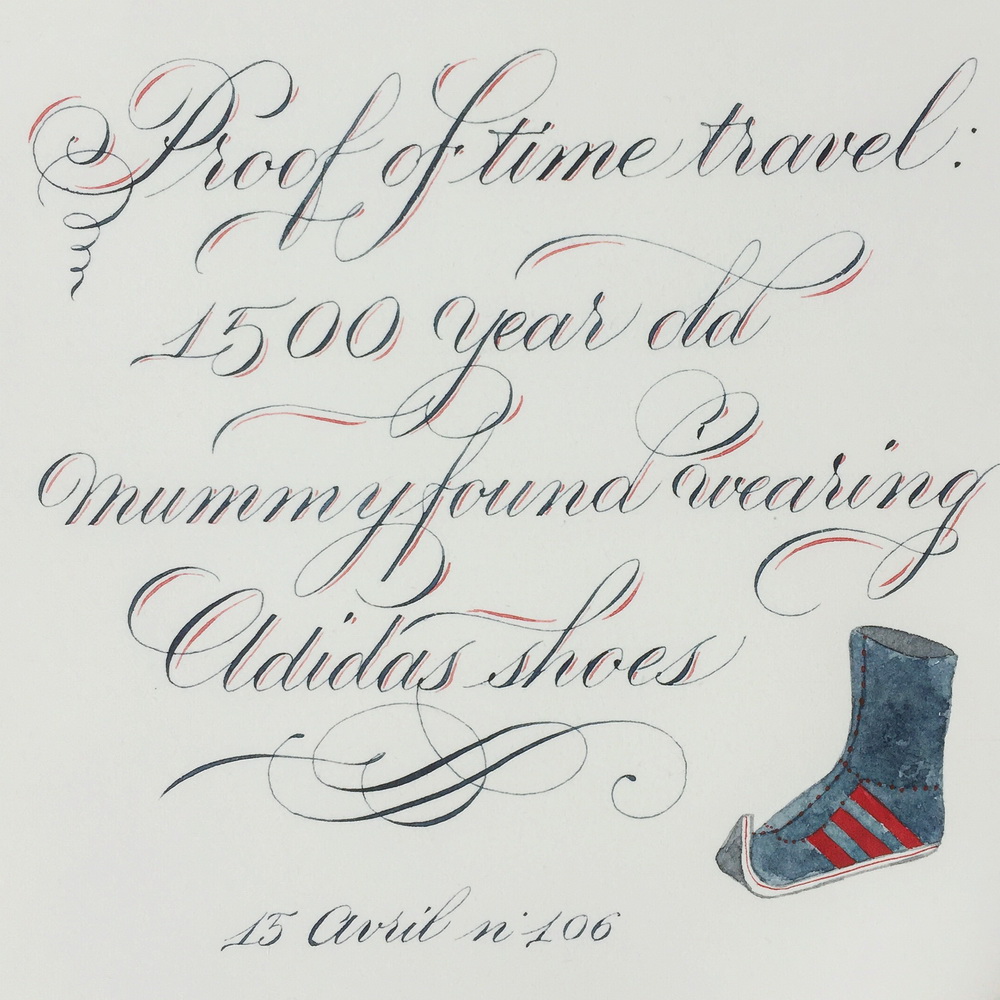 Proof of time travel:
1500 year old
mummy found wearing
Adidas shoes
15 Avril n°106